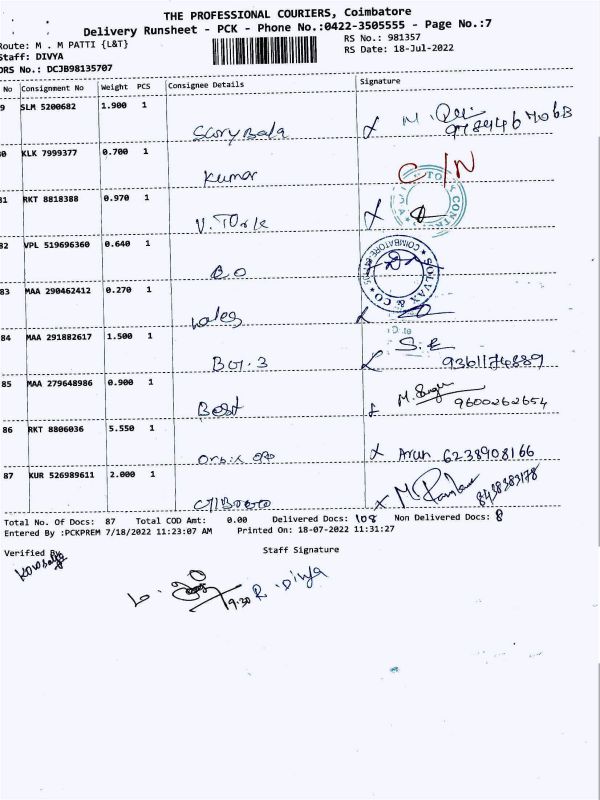 THE PROFESSIONAL COURIERS, Coimbatore
Delivery Runsheet - PCK - Phone No.:0422-3505555 - Page No.:7
Route: M . M PATTI {L&T}
RS No.: 981357
Staff: DIVYA
RS Date: 18-Jul-2022
DRS No.: DCJB98135707
No Consignment No Weight PCS Consignee Details Signature
9 SLM 5200682 1.900 1
0 KLK 7999377 0.700 1
Kumar
C/N
81 RKT 8818388 0.970 1
82 VPL 519696360 0.640 1
B.O
COIMBATORE
SOLVAX & CO
83 MAA 290462412 0.270 1
84 MAA 291882617 1.500 1
S.E
9361174889
85 MAA 279648986 0.900 1
Best
9600262654
86 RKT 8806036 5.550 1
Arun 6238908166
87 KUR 526989611 2.000 1
8438383178
Total No. Of Docs: 87 Total COD Amt: 0.00 Delivered Docs: 108 Non Delivered Docs: 8
Entered By :PCKPREM 7/18/2022 11:23:07 AM Printed On: 18-07-2022 11:31:27
Verified By
Staff Signature
9:30 R. Divya